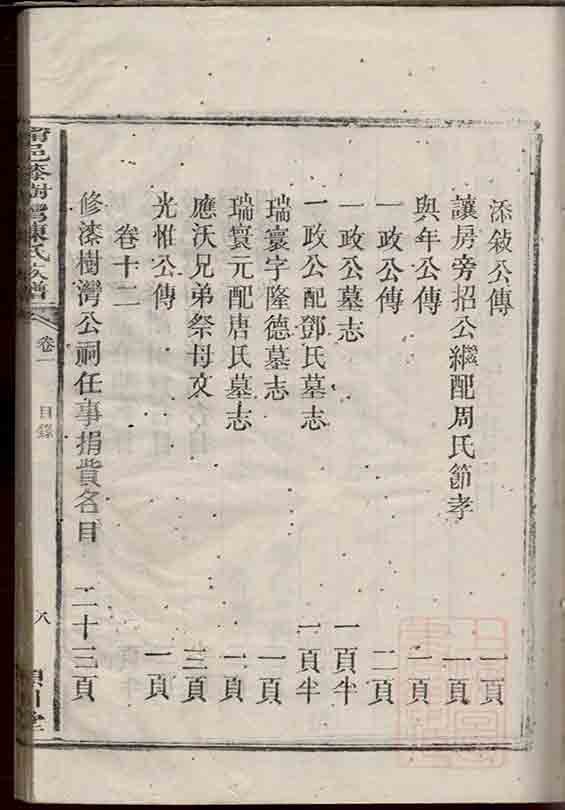 添敍公傳 一頁
讓房旁招公繼配周氏節孝 一頁
與年公傳 一頁
一政公傳 二頁
一政公墓志 一頁半
一政公配鄧氏墓志 一頁半
瑞寰字隆德墓志 一頁
瑞寰元配唐氏墓志 一頁
應沃兄弟祭母文 三頁
光惟公傳 一頁
卷十二
修漆樹灣公祠任事捐費名目 二十三頁
邑漆樹灣陳氏族譜 卷一 目錄 八 川堂